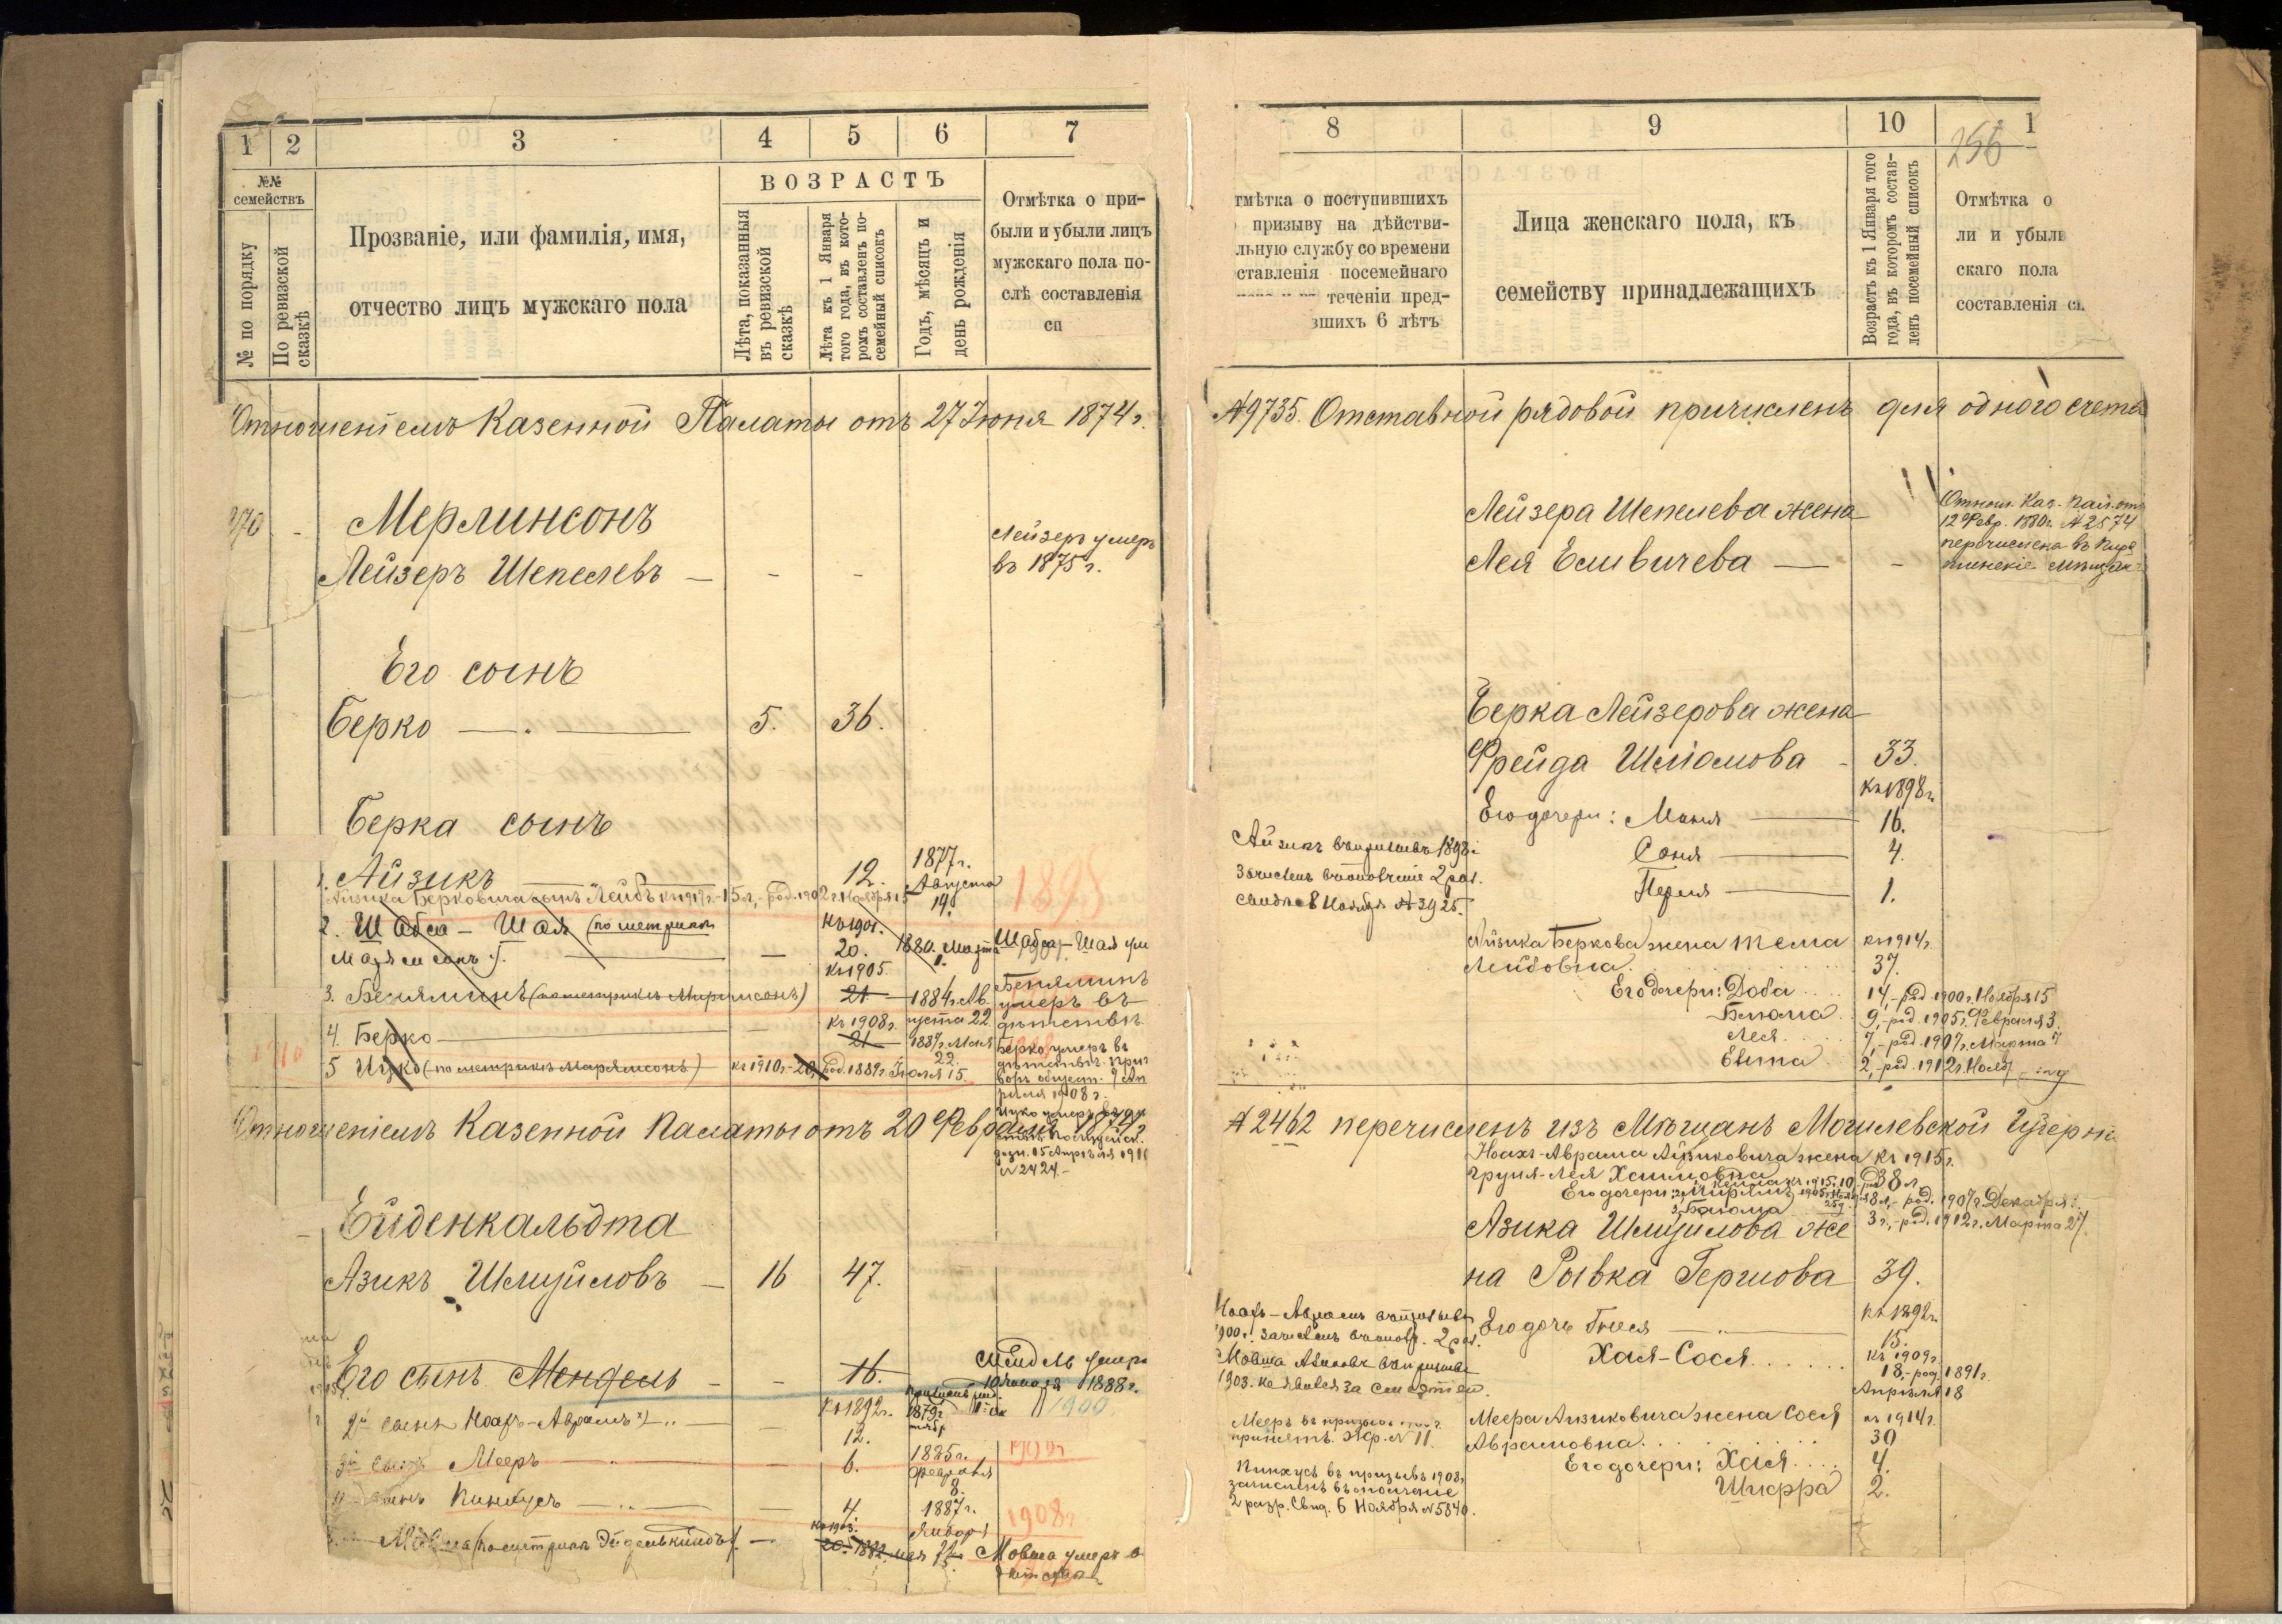 1 2 3 4 5 6 7
№№ семействъ
№ по порядку
По ревизской сказкѣ
Прозваніе, или фамилія, имя,
отчество лицъ мужскаго пола
ВОЗРАСТЪ
Лѣта, показанныя
въ ревизской
сказкѣ
Лѣта къ 1 Января
того года, въ кото-
ромъ составленъ по-
семейный списокъ
Годъ, мѣсяцъ и
день рожденія
Отмѣтка о при-
были и убыли лицъ
мужскаго пола по-
слѣ составленія
сп
Отношеніемъ Казенной Палаты отъ 27 Іюня 1874 г.
Мерлинсонъ
Лейзеръ Шепелевъ — - -
Лейзеръ умеръ
въ 1875 г.
Его сынъ
Берко — 5. 36.
Берка сынъ
1. Айзикъ 12. 1877 г.
Августа
14.
1898
Айзика Берковича сынъ Лейбъ къ 1917 г. - 15 л., - род. 1902 г. Ноября 15
2. Шабса - Шая (по метрикѣ
къ 1901.
20. 1880. Марта
1.
Шабса - Шая ум
3. Беньяминъ (по метрикѣ Мирлинсонъ)
къ 1905
21 1884 г. Ав
густа 22
Беньяминъ
умеръ въ
дѣтствѣ
4. Берко
къ 1908 г.
21 1887 г. Мая
22.
Берко умеръ въ
дѣтствѣ. При
воръ общест. 9 Ап
рѣля 1908 г.
1910
5 Ицко (по метрикѣ Марлинсонъ) къ 1910 г. - 20, род. 1889 г. Іюля 15.
15 Апрѣля 191
№ 2424. -
Отношеніемъ Казенной Палаты отъ 20 Февраля 1874 г
Ейденкальдта
Азикъ Шмуйловъ — 16 47.
Его сынъ Мендель - - 16.
умеръ
1888 г.
2й сынъ Ноахъ-Аврамъ
къ 1892 г.
12.
1879 г
1900
3й сынъ Мееръ — 6.
1885 г.
февраля
8.
4 сынъ Пинхусъ — 4.
1887 г.
Январ
1908 г
Мовша (по метрикѣ Эйделькиндъ).
къ 1903.
20. 1882. мая
Мовша умеръ в
8 9 10 1
256
тмѣтка о поступившихъ
призыву на дѣйстви-
льную службу со времени
ставленія посемейнаго
теченіи пред-
вшихъ 6 лѣтъ
Лица женскаго пола, къ
семейству принадлежащихъ
Возрастъ къ 1 Января того
года, въ которомъ состав-
ленъ посемейный списокъ
Отмѣтка о
ли и убыли
скаго пола
составленія сп
№ 9735. Отставной рядовой причисленъ для одного счета
Лейзера Шепелева жена
Лея Есивичева — -
Отнош. Каз. Пал. отъ
12 Февр. 1880 г. № 2574
перечислена въ
Берка Лейзерова жена
Фрейда Шліомова - 33.
къ 1898 г.
Его дочери: Маня — 16.
Соня — 4.
Перля — 1.
Айзикъ въ призывъ 1898 г
Зачисленъ въ ополченіе 2 раз.
свид. 8 Ноября № 3925.
Айзика Беркова жена Тема къ 1914 г
Лейбовна. 37.
Его дочери: Доба 14, - род. 1900 г. Ноября 15
Блюма 9, - род. 1905 г. Февраля 3.
Лея 7, - род. 1907 г. Марта 7
Евита 2, - род. 1912 г. Нояб
№ 2462 перечисленъ изъ Мѣщанъ Могилевской Губерні
Ноахъ-Аврама Айзиковича жена къ 1915 г.
Груня-Лея Хаимовна 38 л
Его дочери: Мирля 8 л, - род. 1907 г. Декабря
Блюма 3 г., - род. 1912 г. Марта 27.
Азика Шмуйлова же
на Рывка Гершова 39.
Ноахъ-Аврамъ въ призывъ
1900 г. зачисленъ въ ополч. 2 раз.
Его дочь Гнеся —
къ 1892 г.
15.
Хая-Сося
къ 1909 г.
18, - род. 1891 г.
Апрѣля 18
Мовша Азиковъ въ призывѣ
1903. не явился за смертію.
Мееръ въ призывѣ
принятъ. № 11.
Меера Айзиковича жена Сося къ 1914 г.
Аврамовна. 30
Его дочери: Хася 4.
Шифра 2.
Пинхусъ въ призывъ 1908 г
зачисленъ въ ополченіе
2 разр. Свид. 6 Ноября № 5840.